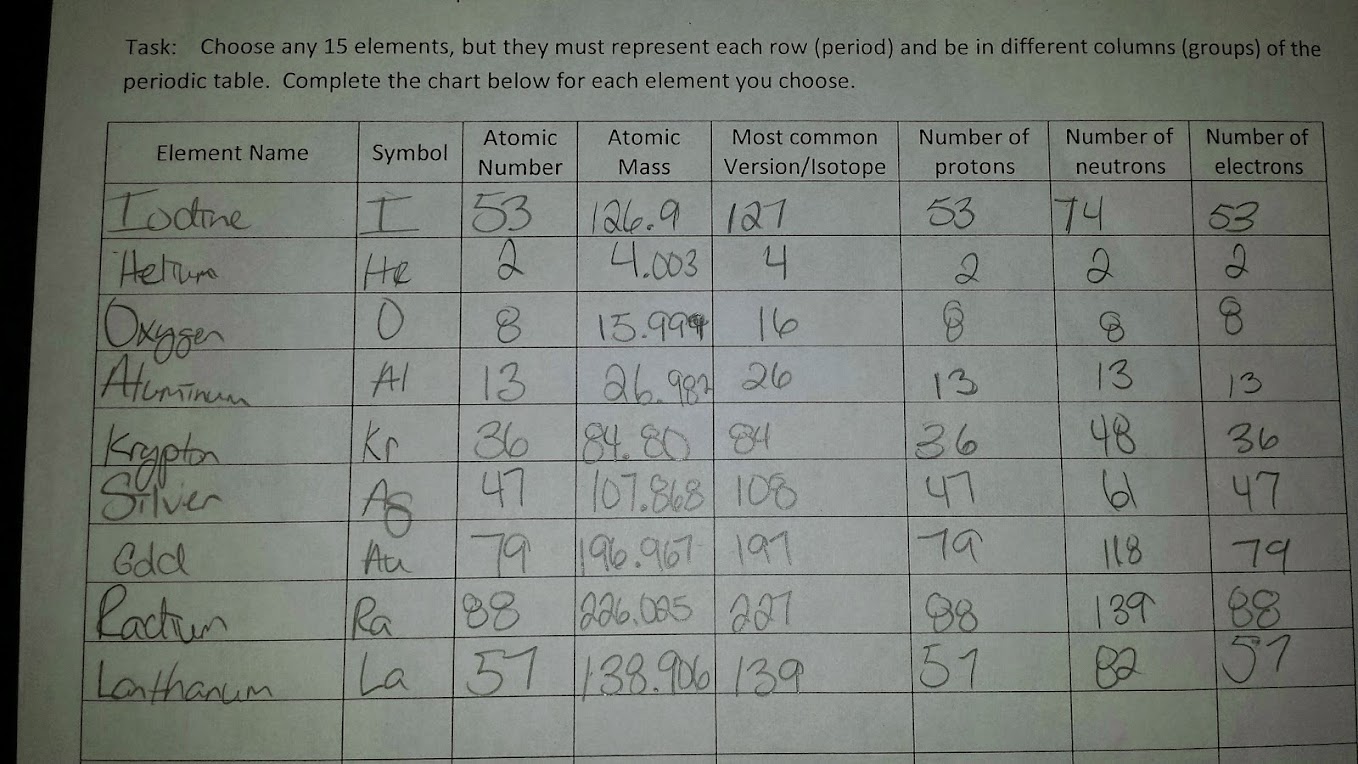 Task: Choose any 15 elements, but they must represent each row (period) and be in different columns (groups) of the
periodic table. Complete the chart below for each element you choose.
Element Name Symbol Atomic Number Atomic Mass Most common Version/Isotope Number of protons Number of neutrons Number of electrons
Iodine I 53 126.9 127 53 74 53
Helium He 2 4.003 4 2 2 2
Oxygen O 8 15.999 16 8 8 8
Aluminum Al 13 26.982 26 13 13 13
Krypton Kr 36 84.80 84 36 48 36
Silver Ag 47 107.868 108 47 61 47
Gold Au 79 196.967 197 79 118 79
Radium Ra 88 226.025 227 88 139 88
Lanthanum La 57 138.906 139 57 82 57